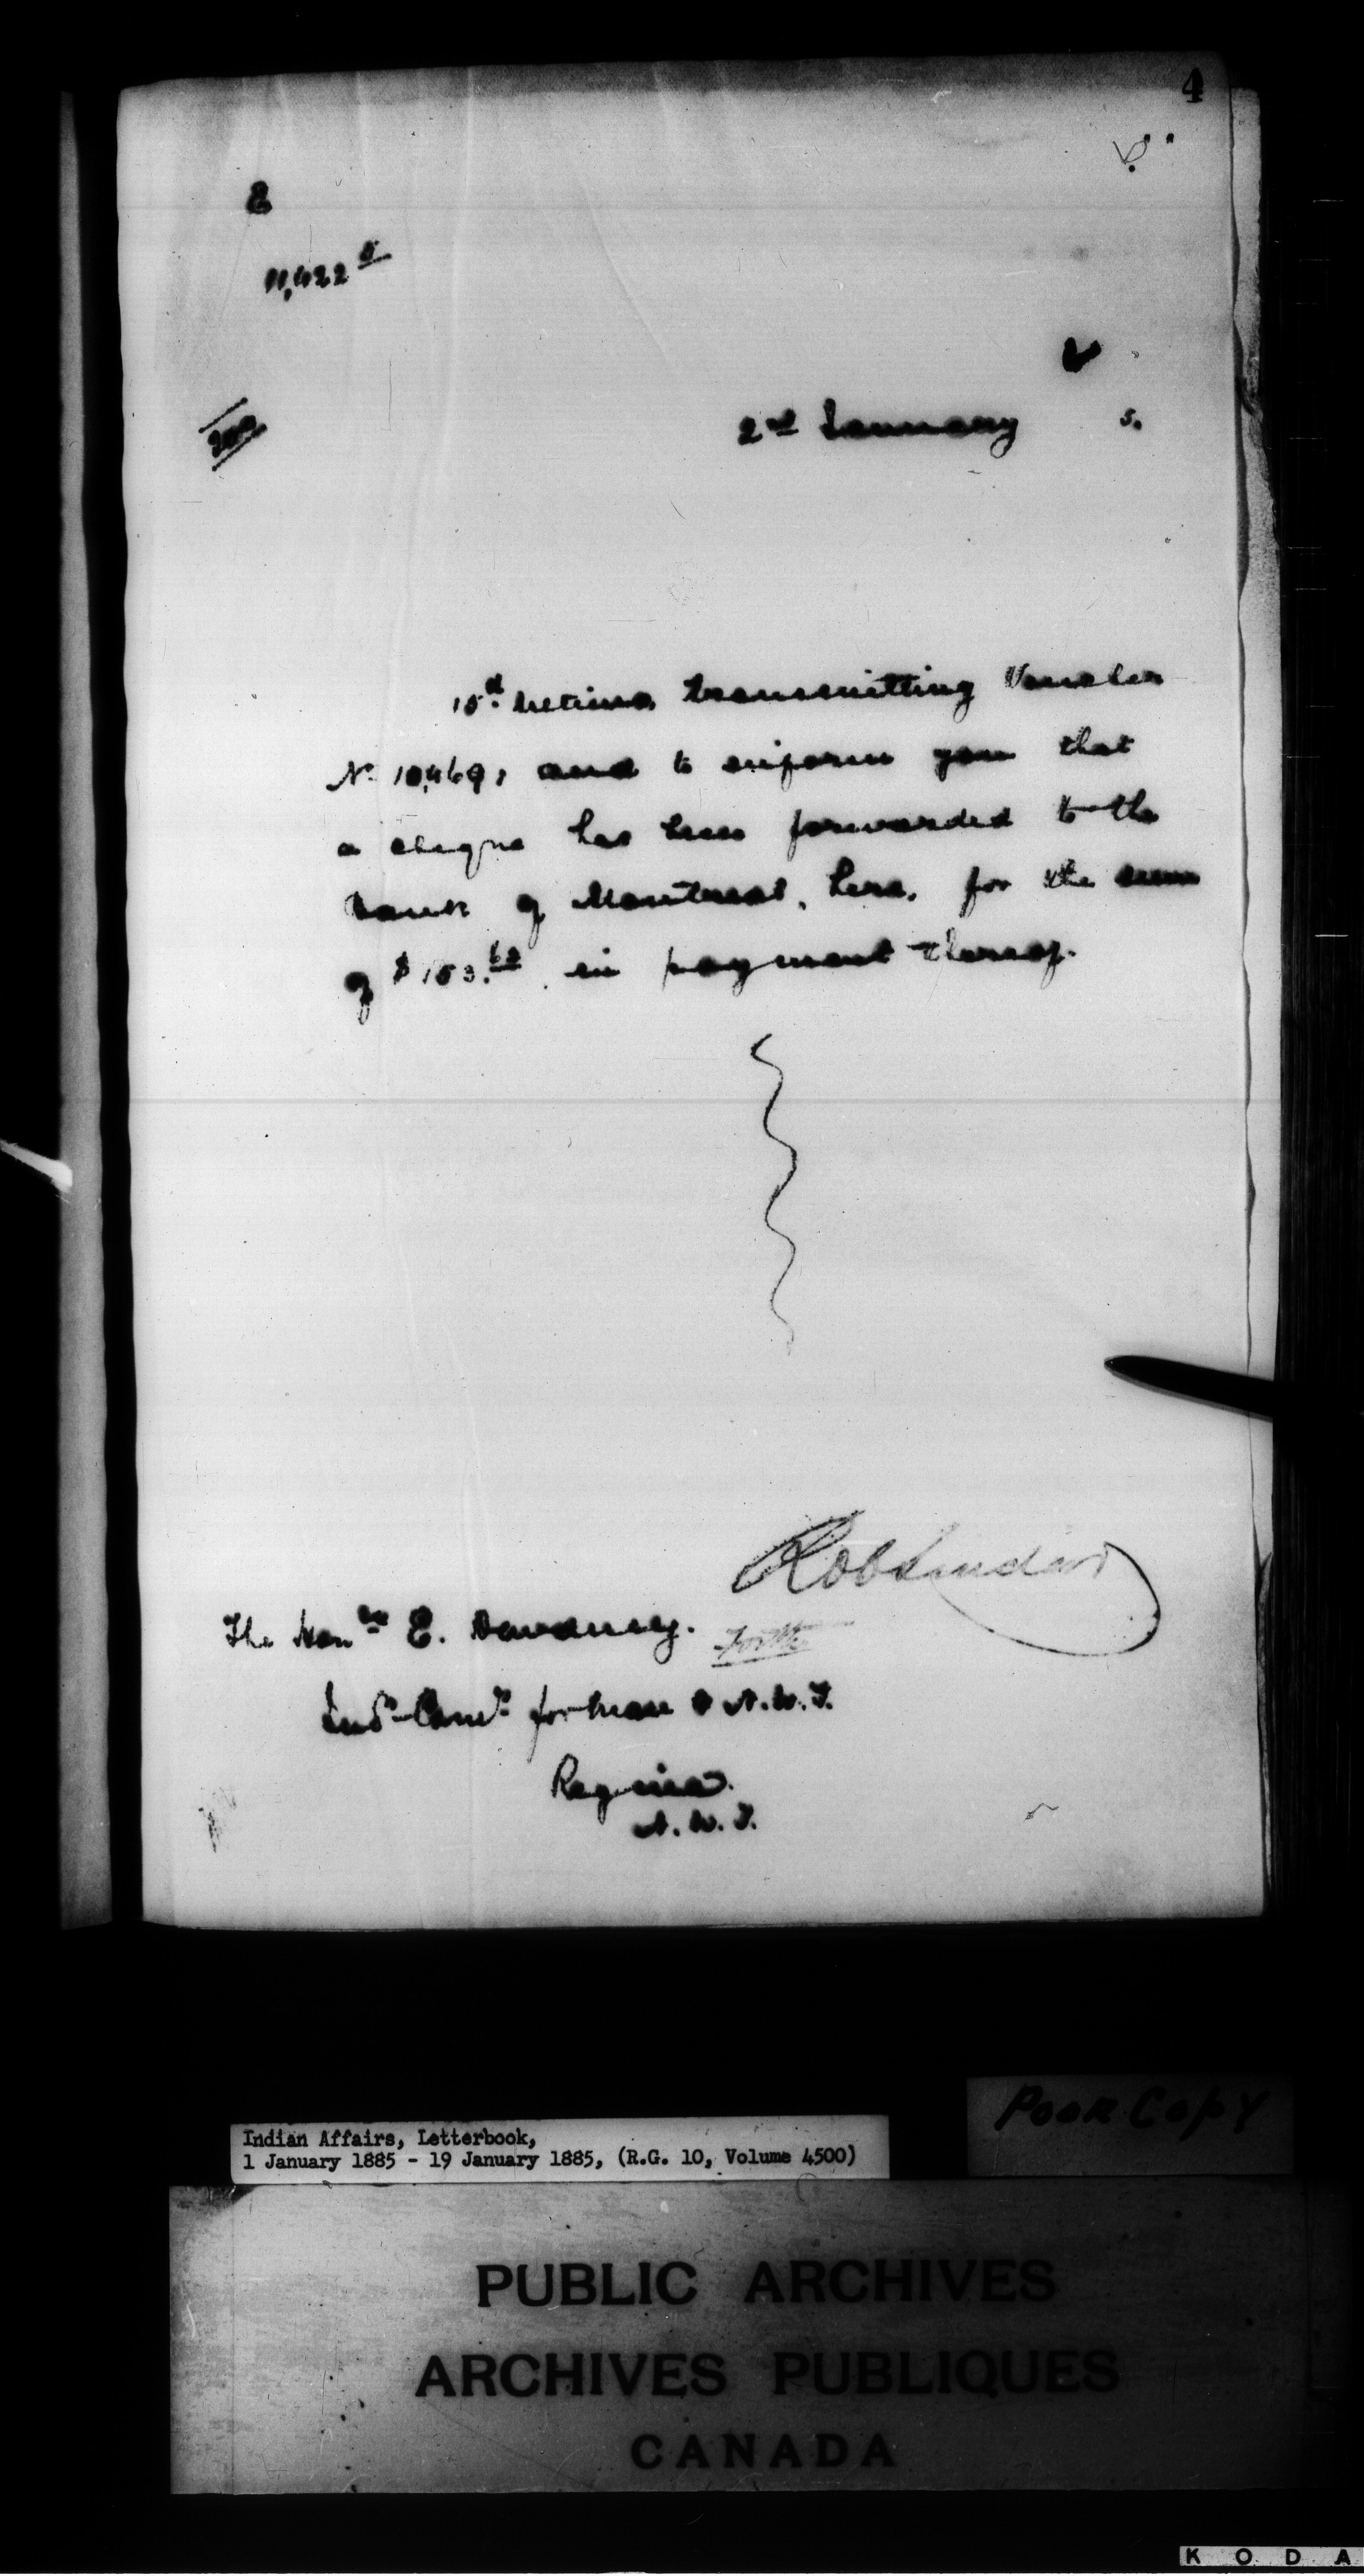 4
E
11,422
2nd January 5.
15th ultimo, transmitting Voucher
No 10,469, and to inform you that
a cheque has been forwarded to the
Bank of Montreal, here, for the sum
of $153.62 in payment thereof.
Rob Sinclair
The Honble E. Dewdney.
Indn Comr for Man & N.W.T.
Regina.
N.W.T.
Poor Copy
Indian Affairs, Letterbook,
1 January 1885 - 19 January 1885, (R.G. 10, Volume 4500)
PUBLIC ARCHIVES
ARCHIVES PUBLIQUES
CANADA
KODA